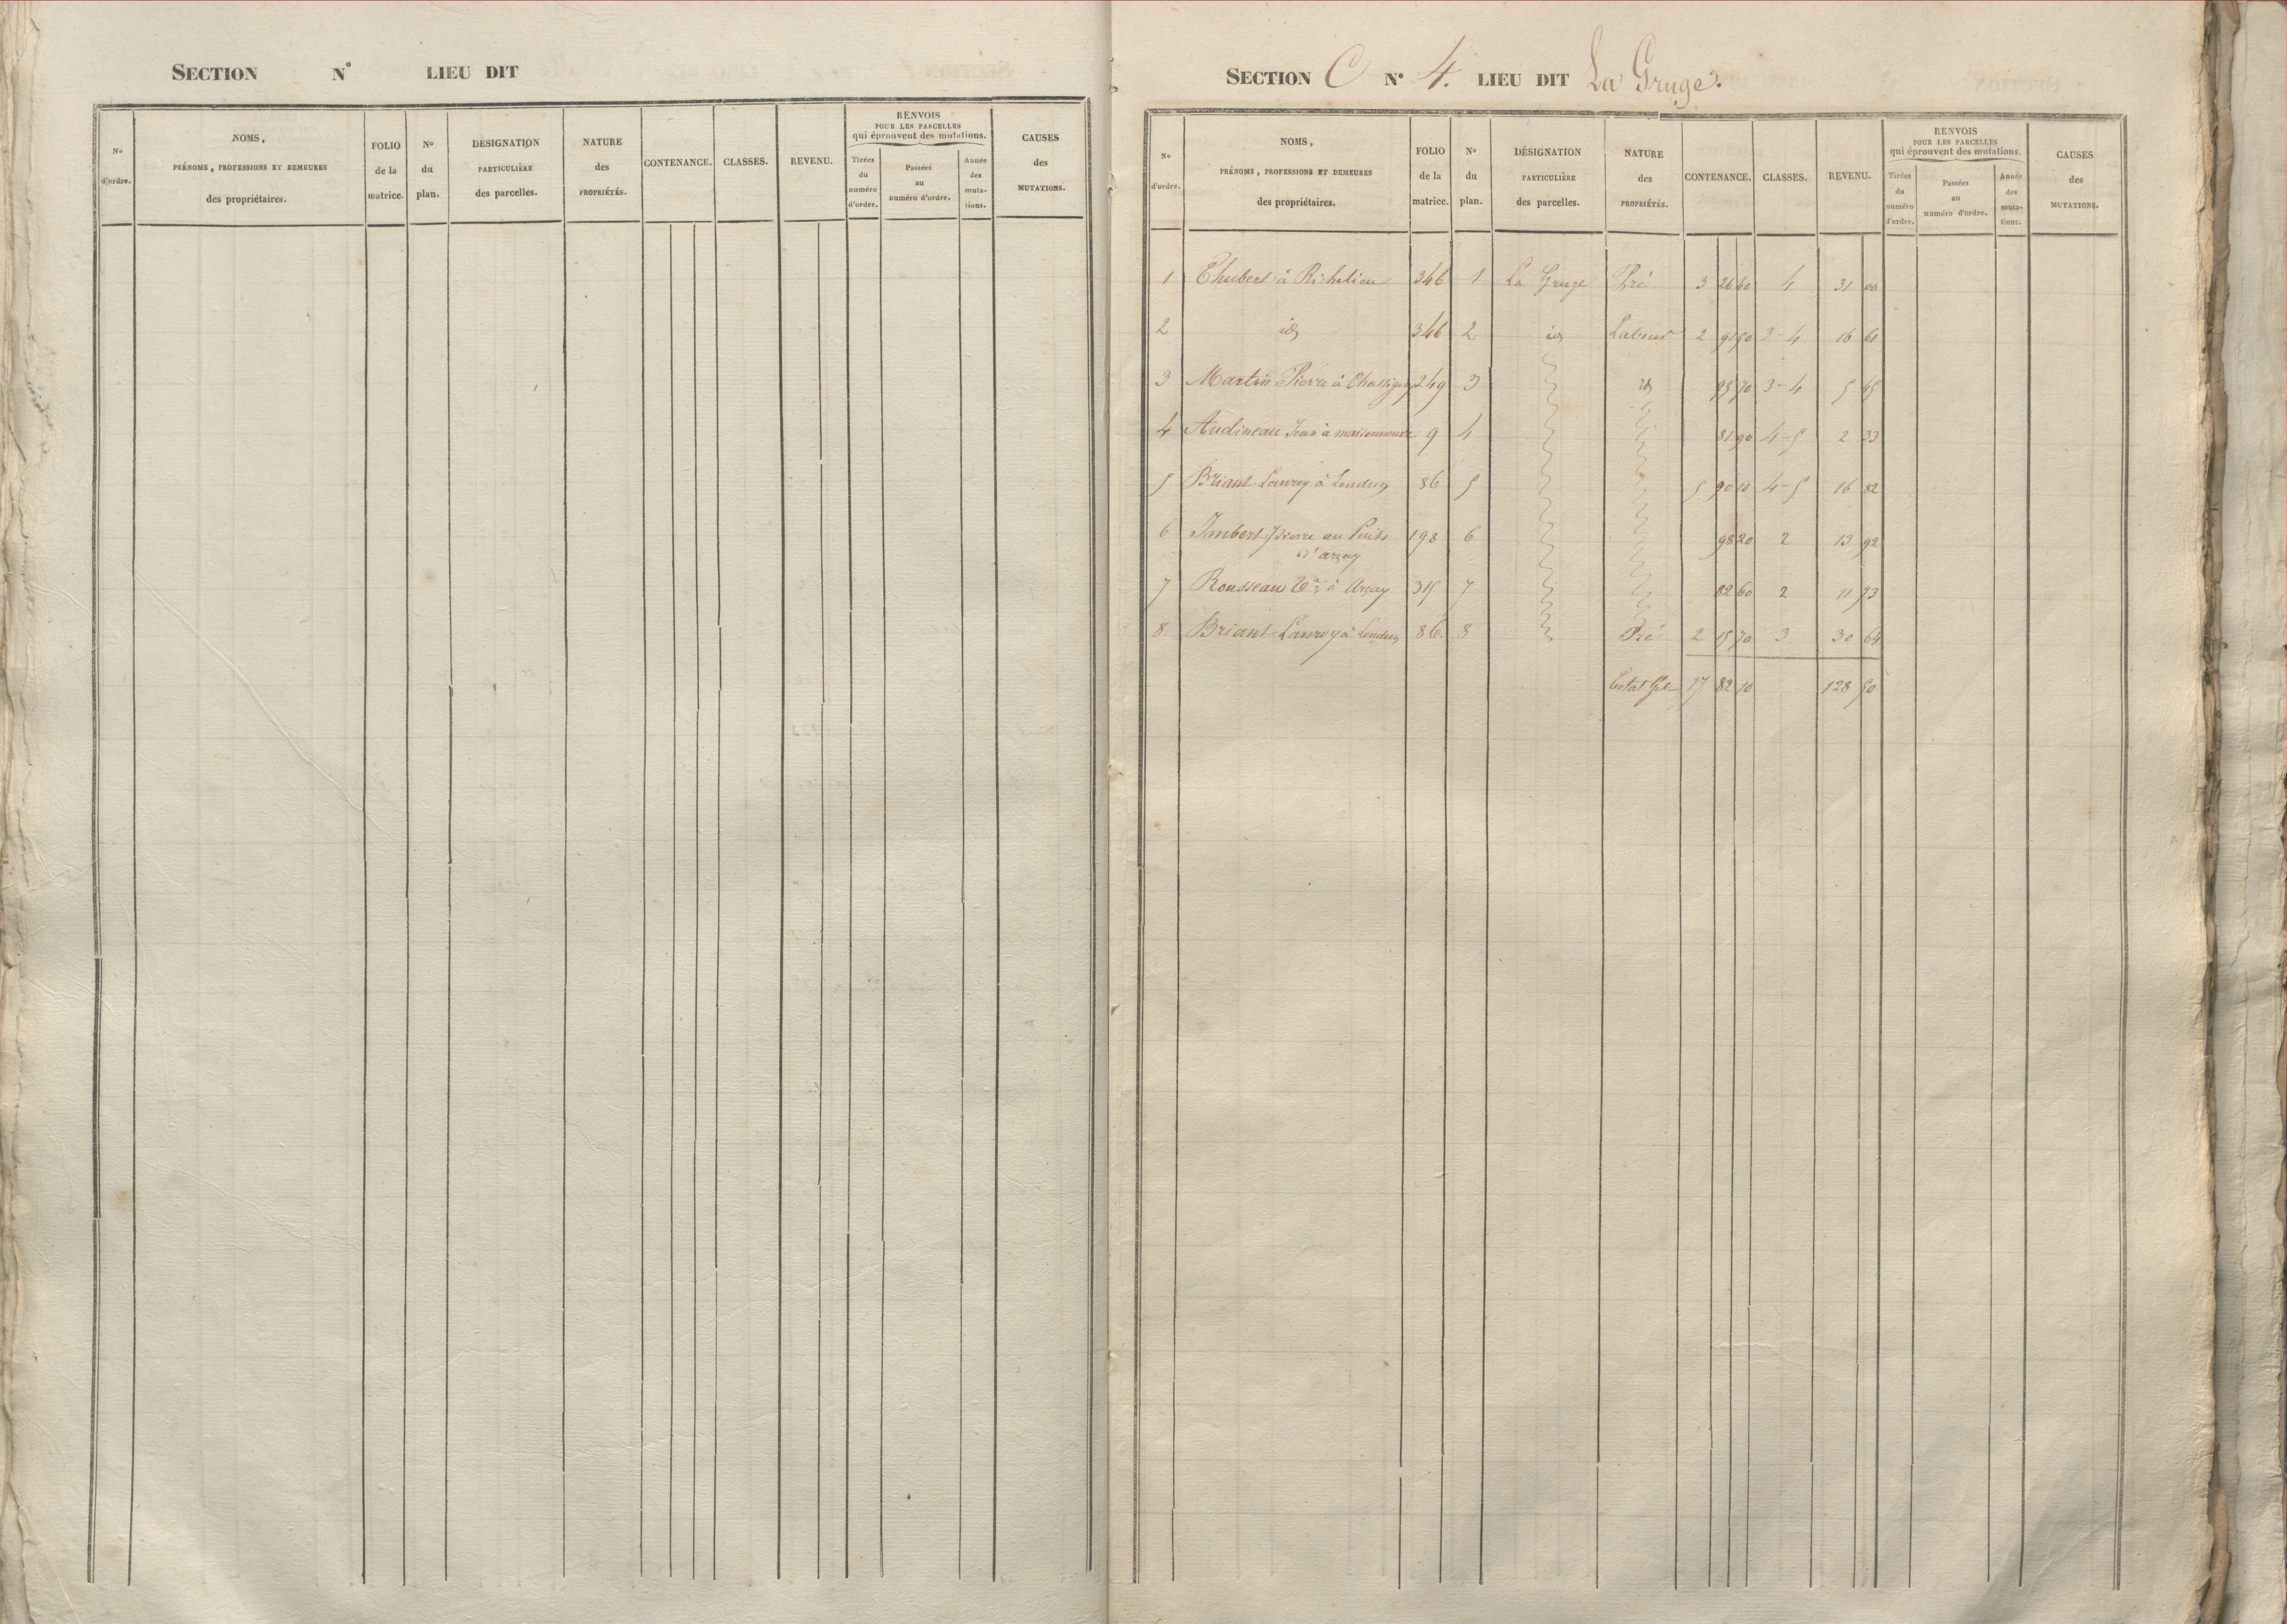 SECTION N° LIEU DIT
N° d'ordre.
NOMS,
PRÉNOMS, PROFESSIONS ET DEMEURES
des propriétaires.
FOLIO de la matrice.
N° du plan.
DÉSIGNATION PARTICULIÈRE des parcelles.
NATURE des PROPRIÉTÉS.
CONTENANCE.
CLASSES.
REVENU.
RENVOIS
POUR LES PARCELLES
qui éprouvent des mutations.
Tirées du numéro d'ordre.
Passées au numéro d'ordre.
Année des mutations.
CAUSES des MUTATIONS.
SECTION C N° 4. LIEU DIT La Gruge.
N° d'ordre.
NOMS,
PRÉNOMS, PROFESSIONS ET DEMEURES
des propriétaires.
FOLIO de la matrice.
N° du plan.
DÉSIGNATION PARTICULIÈRE des parcelles.
NATURE des PROPRIÉTÉS.
CONTENANCE.
CLASSES.
REVENU.
RENVOIS
POUR LES PARCELLES
qui éprouvent des mutations.
Tirées du numéro d'ordre.
Passées au numéro d'ordre.
Année des mutations.
CAUSES des MUTATIONS.
1 Thubert à Richelieu 346 1 La Gruge Pré 3 26 40 4 31 00
2 id 346 2 id Labour 2 91 50 3-4 16 61
3 Martin Pierre à Chassigny 249 3 id 95 70 3-4 5 45
4 Audineau Jean à maisonneuve 9 4 81 90 4-5 2 33
5 Briant à Loudun 86 5 5 90 10 4-5 16 82
6 Imbert Pierre au Petit 198 6 98 20 2 13 92
d'arçay
7 Rousseau Vve à Arçay 315 7 82 60 2 11 73
8 Briant à Loudun 86 8 Pré 2 15 70 3 30 64
Total Gal 17 82 10 128 50